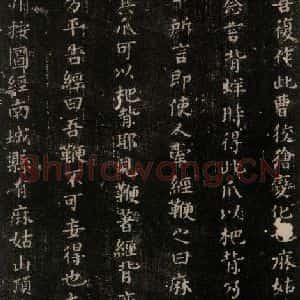 喜復作此曹狡獪變化也麻姑
念言背蛘時得此爪以杷背乃
所言即使人牽經鞭之曰麻
其爪可以杷背耶見鞭著經背亦
方平告經曰吾鞭不可妄得也大
州按圖經南城縣有麻姑山頂
Shufawang.CN